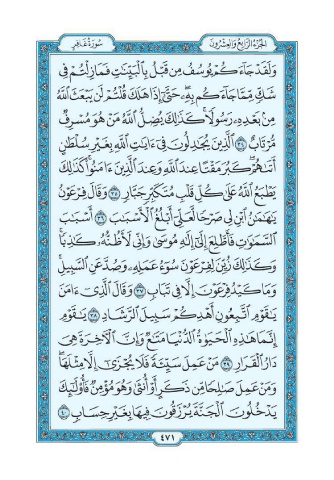 الجُزْءُ الرَّابِعُ وَالعِشْرُونَ
سُورَةُ غَافِرٍ
وَلَقَدْ جَآءَكُمْ يُوسُفُ مِن قَبْلُ بِٱلْبَيِّنَٰتِ فَمَا زِلْتُمْ فِى
شَكٍّ مِّمَّا جَآءَكُم بِهِۦ ۖ حَتَّىٰٓ إِذَا هَلَكَ قُلْتُمْ لَن يَبْعَثَ ٱللَّهُ
مِنۢ بَعْدِهِۦ رَسُولًا ۚ كَذَٰلِكَ يُضِلُّ ٱللَّهُ مَنْ هُوَ مُسْرِفٌ
مُّرْتَابٌ ٣٤ ٱلَّذِينَ يُجَٰدِلُونَ فِىٓ ءَايَٰتِ ٱللَّهِ بِغَيْرِ سُلْطَٰنٍ
أَتَىٰهُمْ ۖ كَبُرَ مَقْتًا عِندَ ٱللَّهِ وَعِندَ ٱلَّذِينَ ءَامَنُوا۟ ۚ كَذَٰلِكَ
يَطْبَعُ ٱللَّهُ عَلَىٰ كُلِّ قَلْبِ مُتَكَبِّرٍ جَبَّارٍ ٣٥ وَقَالَ فِرْعَوْنُ
يَٰهَٰمَٰنُ ٱبْنِ لِى صَرْحًا لَّعَلِّىٓ أَبْلُغُ ٱلْأَسْبَٰبَ ٣٦ أَسْبَٰبَ
ٱلسَّمَٰوَٰتِ فَأَطَّلِعَ إِلَىٰٓ إِلَٰهِ مُوسَىٰ وَإِنِّى لَأَظُنُّهُۥ كَٰذِبًا ۚ
وَكَذَٰلِكَ زُيِّنَ لِفِرْعَوْنَ سُوٓءُ عَمَلِهِۦ وَصُدَّ عَنِ ٱلسَّبِيلِ ۚ
وَمَا كَيْدُ فِرْعَوْنَ إِلَّا فِى تَبَابٍ ٣٧ وَقَالَ ٱلَّذِىٓ ءَامَنَ
يَٰقَوْمِ ٱتَّبِعُونِ أَهْدِكُمْ سَبِيلَ ٱلرَّشَادِ ٣٨ يَٰقَوْمِ
إِنَّمَا هَٰذِهِ ٱلْحَيَوٰةُ ٱلدُّنْيَا مَتَٰعٌ وَإِنَّ ٱلْءَاخِرَةَ هِىَ
دَارُ ٱلْقَرَارِ ٣٩ مَنْ عَمِلَ سَيِّئَةً فَلَا يُجْزَىٰٓ إِلَّا مِثْلَهَا ۖ
وَمَنْ عَمِلَ صَٰلِحًا مِّن ذَكَرٍ أَوْ أُنثَىٰ وَهُوَ مُؤْمِنٌ فَأُو۟لَٰٓئِكَ
يَدْخُلُونَ ٱلْجَنَّةَ يُرْزَقُونَ فِيهَا بِغَيْرِ حِسَابٍ ٤٠
٤٧١